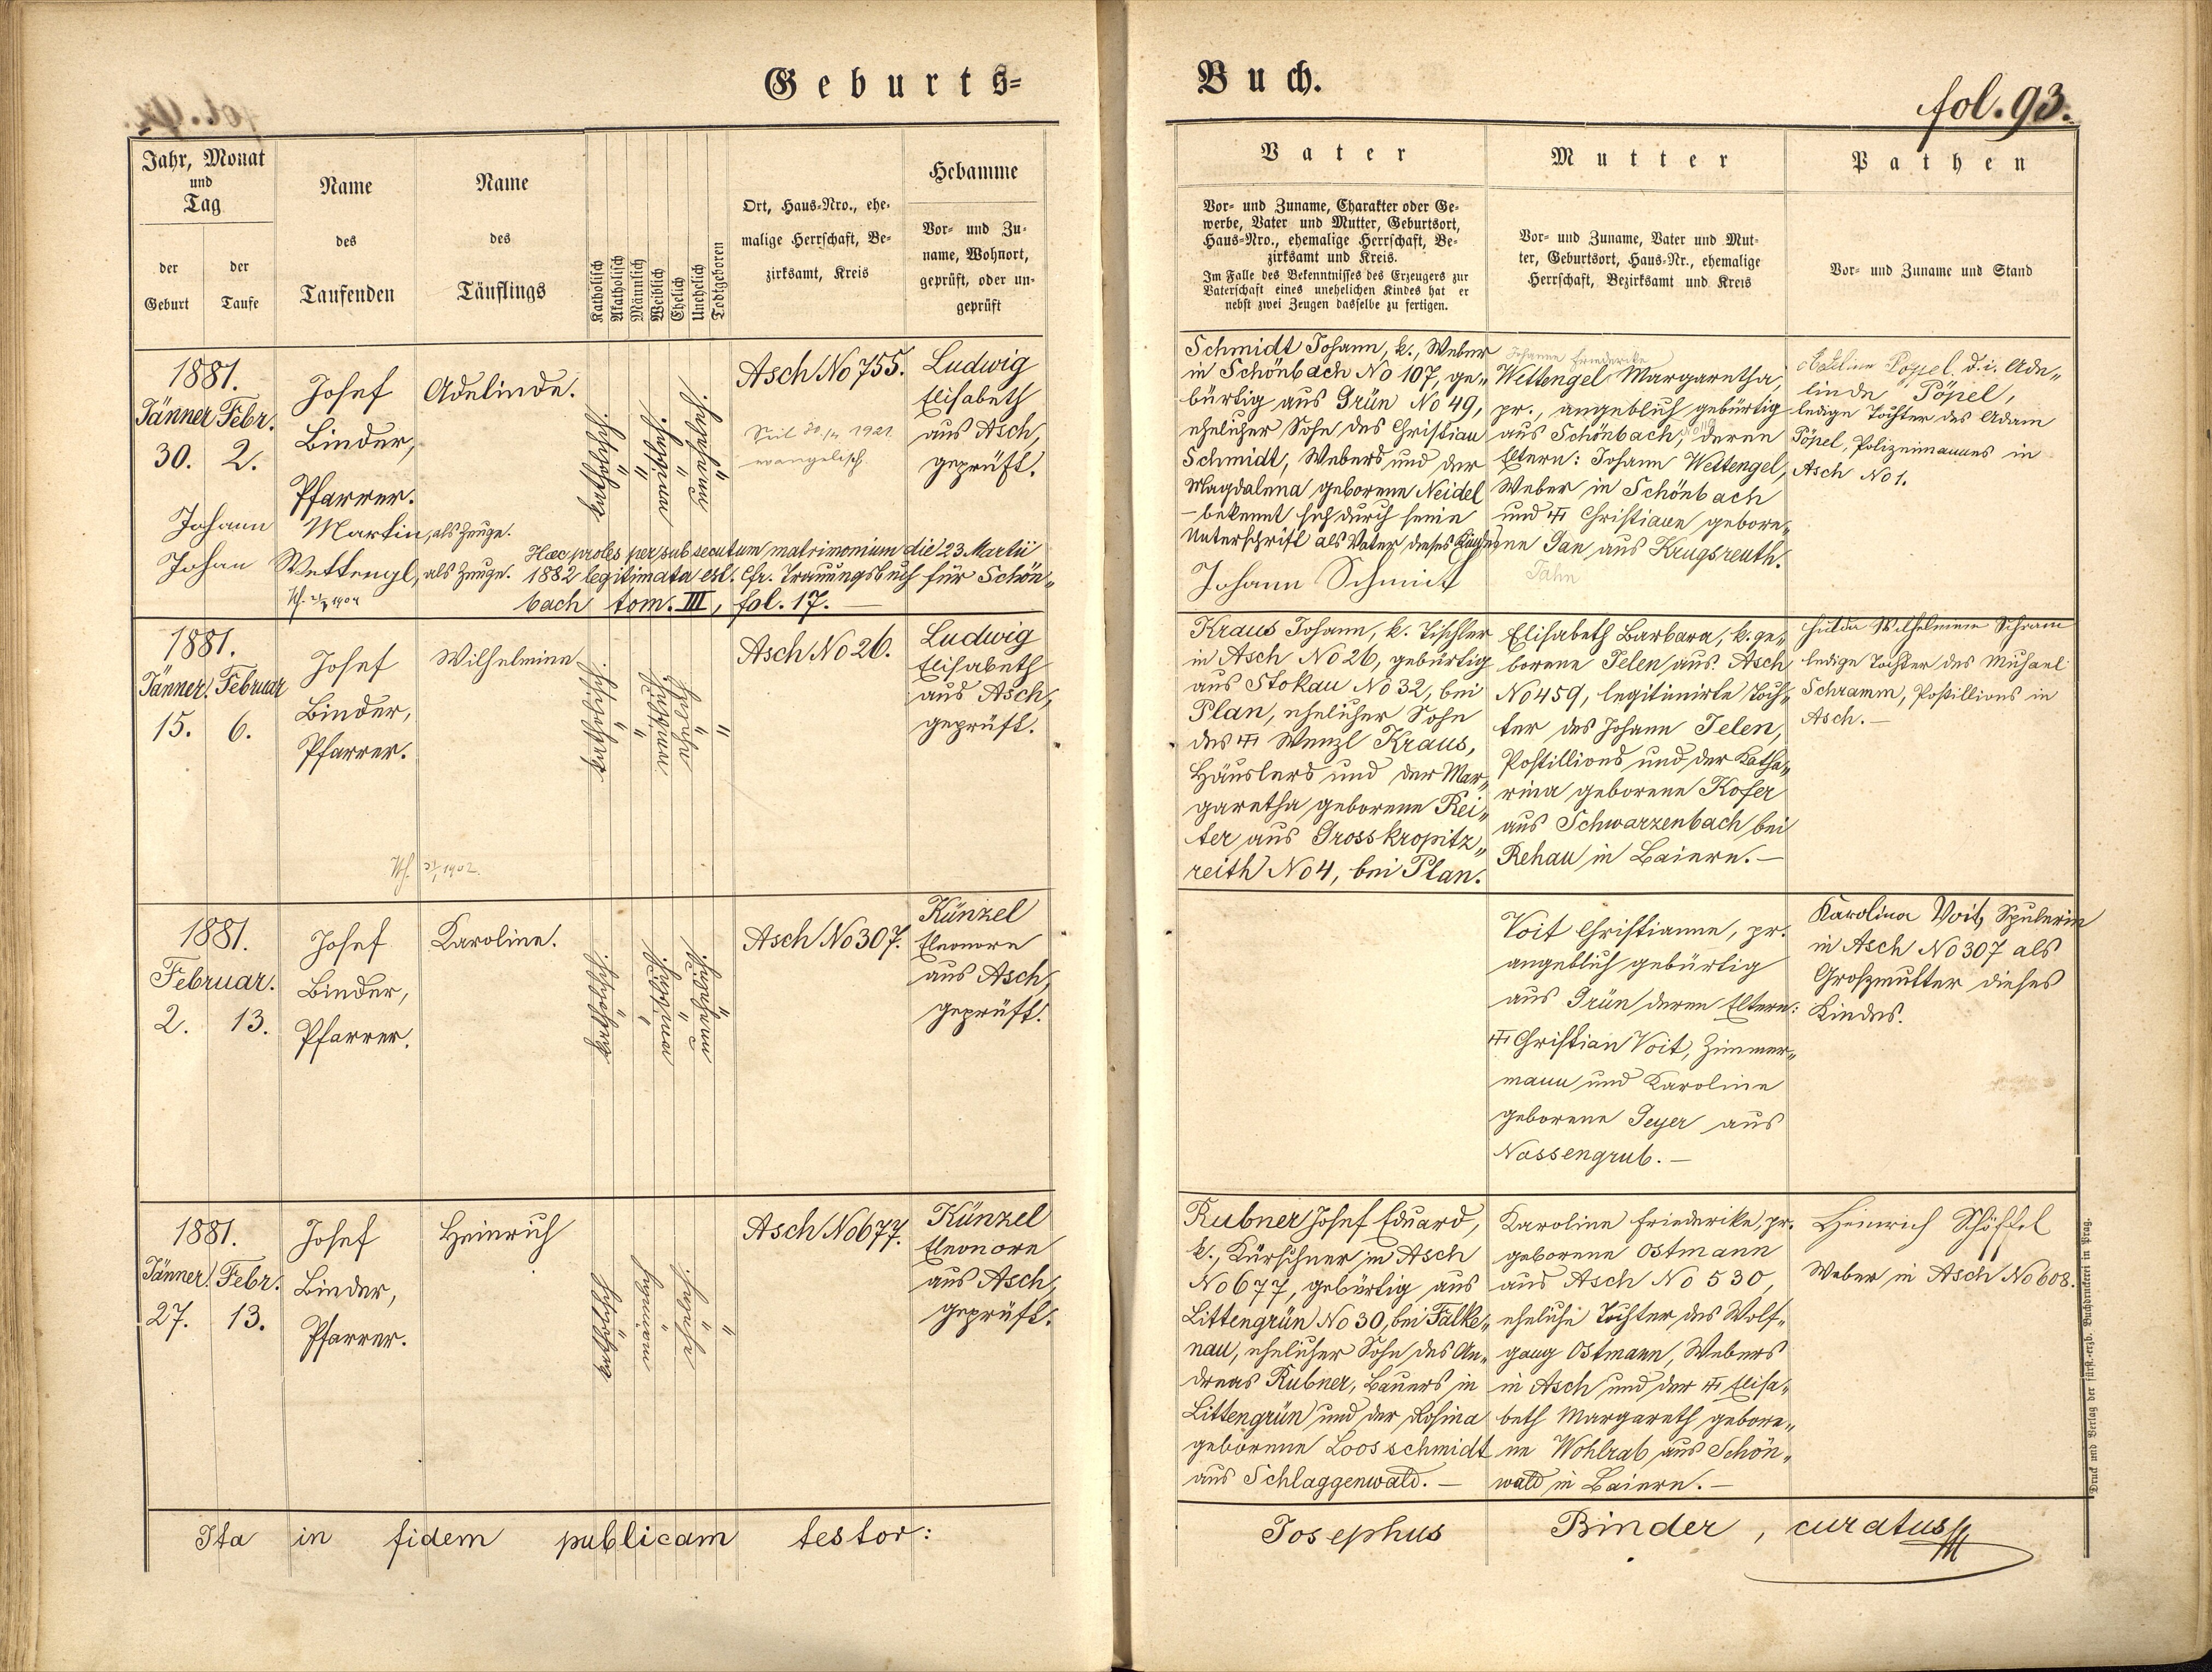 Geburts=
Buch.
fol. 93.
Jahr, Monat
und
Tag
der
Geburt
der
Taufe
Name
des
Taufenden
Name
des
Täuflings
Katholisch
Akatholisch
Männlich
Weiblich
Ehelich
Unehelich
Todtgeboren
Ort, Haus-Nro., ehe-
malige Herrschaft, Be-
zirksamt, Kreis
Hebamme
Vor- und Zu-
name, Wohnort,
geprüft, oder un-
geprüft
Vater
Vor- und Zuname, Charakter oder Ge-
werbe, Vater und Mutter, Geburtsort,
Haus-Nro., ehemalige Herrschaft, Be-
zirksamt und Kreis.
Im Falle des Bekenntnisses des Erzeugers zur
Vaterschaft eines unehelichen Kindes hat er
nebst zwei Zeugen dasselbe zu fertigen.
Mutter
Vor- und Zuname, Vater und Mut-
ter, Geburtsort, Haus-Nr., ehemalige
Herrschaft, Bezirksamt und Kreis
Pathen
Vor- und Zuname und Stand
1881.
Jänner Febr.
30. 2.
Josef
Binder,
Pfarrer.
Adelinde.
katholisch
"
"
weiblich
"
unehelich
"
Asch No 755.
Seit 1921
evangelisch
Ludwig
Elisabeth
aus Asch,
geprüft.
Johann Martin, als Zeuge.
Johan Wettengl, als Zeuge.
Haec proles per subsecutum matrimonium die 23 Martii
1882 legitimata est. Cfr. Trauungsbuch für Schön„
bach tom. III, fol. 17.—
Schmidt Johann, k., Weber
in Schönbach No 107, ge„
bürtig aus Grün No 49,
ehelicher Sohn des Christian
Schmidt, Webers und der
Magdalena geborene Neidel
– bekennt sich durch seine
Unterschrift als Vater dieses Kindes
Johann Schmidt
Johanne Friederike
Wettengel Margaretha,
pr., angeblich gebürtig
aus Schönbach, deren
Eltern: Johann Wettengel,
Weber in Schönbach
und Christiane gebore„
ne Jan aus Krugsreuth.
Jahn
Adeline Popel d. i. Ade„
linde Pöpel,
ledige Tochter des Adam
Pöpel, Polizeimannes in
Asch No 1.
1881.
Jänner. Februar
15. 6.
Josef
Binder,
Pfarrer.
Wilhelmine
katholisch
"
"
weiblich
ehelich
"
"
Asch No 26.
Ludwig
Elisabeth
aus Asch,
geprüft.
Kraus Johann, k. Tischler
in Asch No 26, gebürtig
aus Stokau No 32, bei
Plan, ehelicher Sohn
des Wenzl Kraus,
Häuslers und der Mar„
garetha geborene Rei„
ter aus Grosskropitz„
reith No 4, bei Plan.
Elisabeth Barbara, k. ge„
borene Jelen aus Asch
No 459, legitimirte Toch„
ter des Johann Jelen,
Postillions und der Katha„
rina geborene Kofer
aus Schwarzenbach bei
Rehau in Baiern.—
Hulda Wilhelmine Schram
ledige Tochter des Michael
Schramm, Postillions in
Asch.—
1881.
Februar.
2. 13.
Josef
Binder,
Pfarrer.
Karoline.
katholisch
"
"
weiblich
"
unehelich
"
Asch No 307.
Künzel
Eleonore
aus Asch,
geprüft.
Voit Christianne, pr.
angeblich gebürtig
aus Grün deren Eltern:
Christian Voit, Zimmer„
mann und Karoline
geborene Geyer aus
Nassengrub.—
Karolina Voit, Spulerin
in Asch No 307 als
Großmutter dieses
Kindes.
1881.
Jänner. Febr.
27. 13.
Josef
Binder,
Pfarrer.
Heinrich
katholisch
"
männlich
"
ehelich
"
"
Asch No 677.
Künzel
Eleonore
aus Asch,
geprüft.
Rubner Josef Eduard,
k., Kürschner in Asch
No 677, gebürtig aus
Littengrün No 30, bei Falke„
nau, ehelicher Sohn des An„
dreas Rubner, Bauers in
Littengrün und der Rosina
geborene Loosschmidt
aus Schlaggenwald.—
Karoline Friederike, pr.
geborene Ostmann
aus Asch No 530,
eheliche Tochter des Wolf„
gang Ostmann, Webers
in Asch und der Elisa„
beth Margareth gebore„
ne Wohlrab aus Schön„
wald in Baiern.—
Heinrich Schöffel
Weber in Asch No 608.
Ita in fidem publicam testor:
Josephus Binder, curatus
Druck und Verlag der fürst.-erzb. Buchdruckerei in Prag.